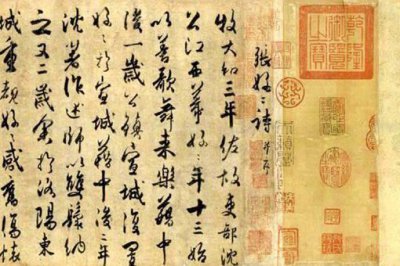 張好〻詩 并序
牧大和三年佐故吏部沈
公江西幕好〻年十三始
以善歌舞來樂籍中
後一歲公鎮宣城復置
好〻於宣城籍中後二年
沈著作述師以雙鬟納
之又二歲余於洛陽東
城重覩好〻感舊傷懷